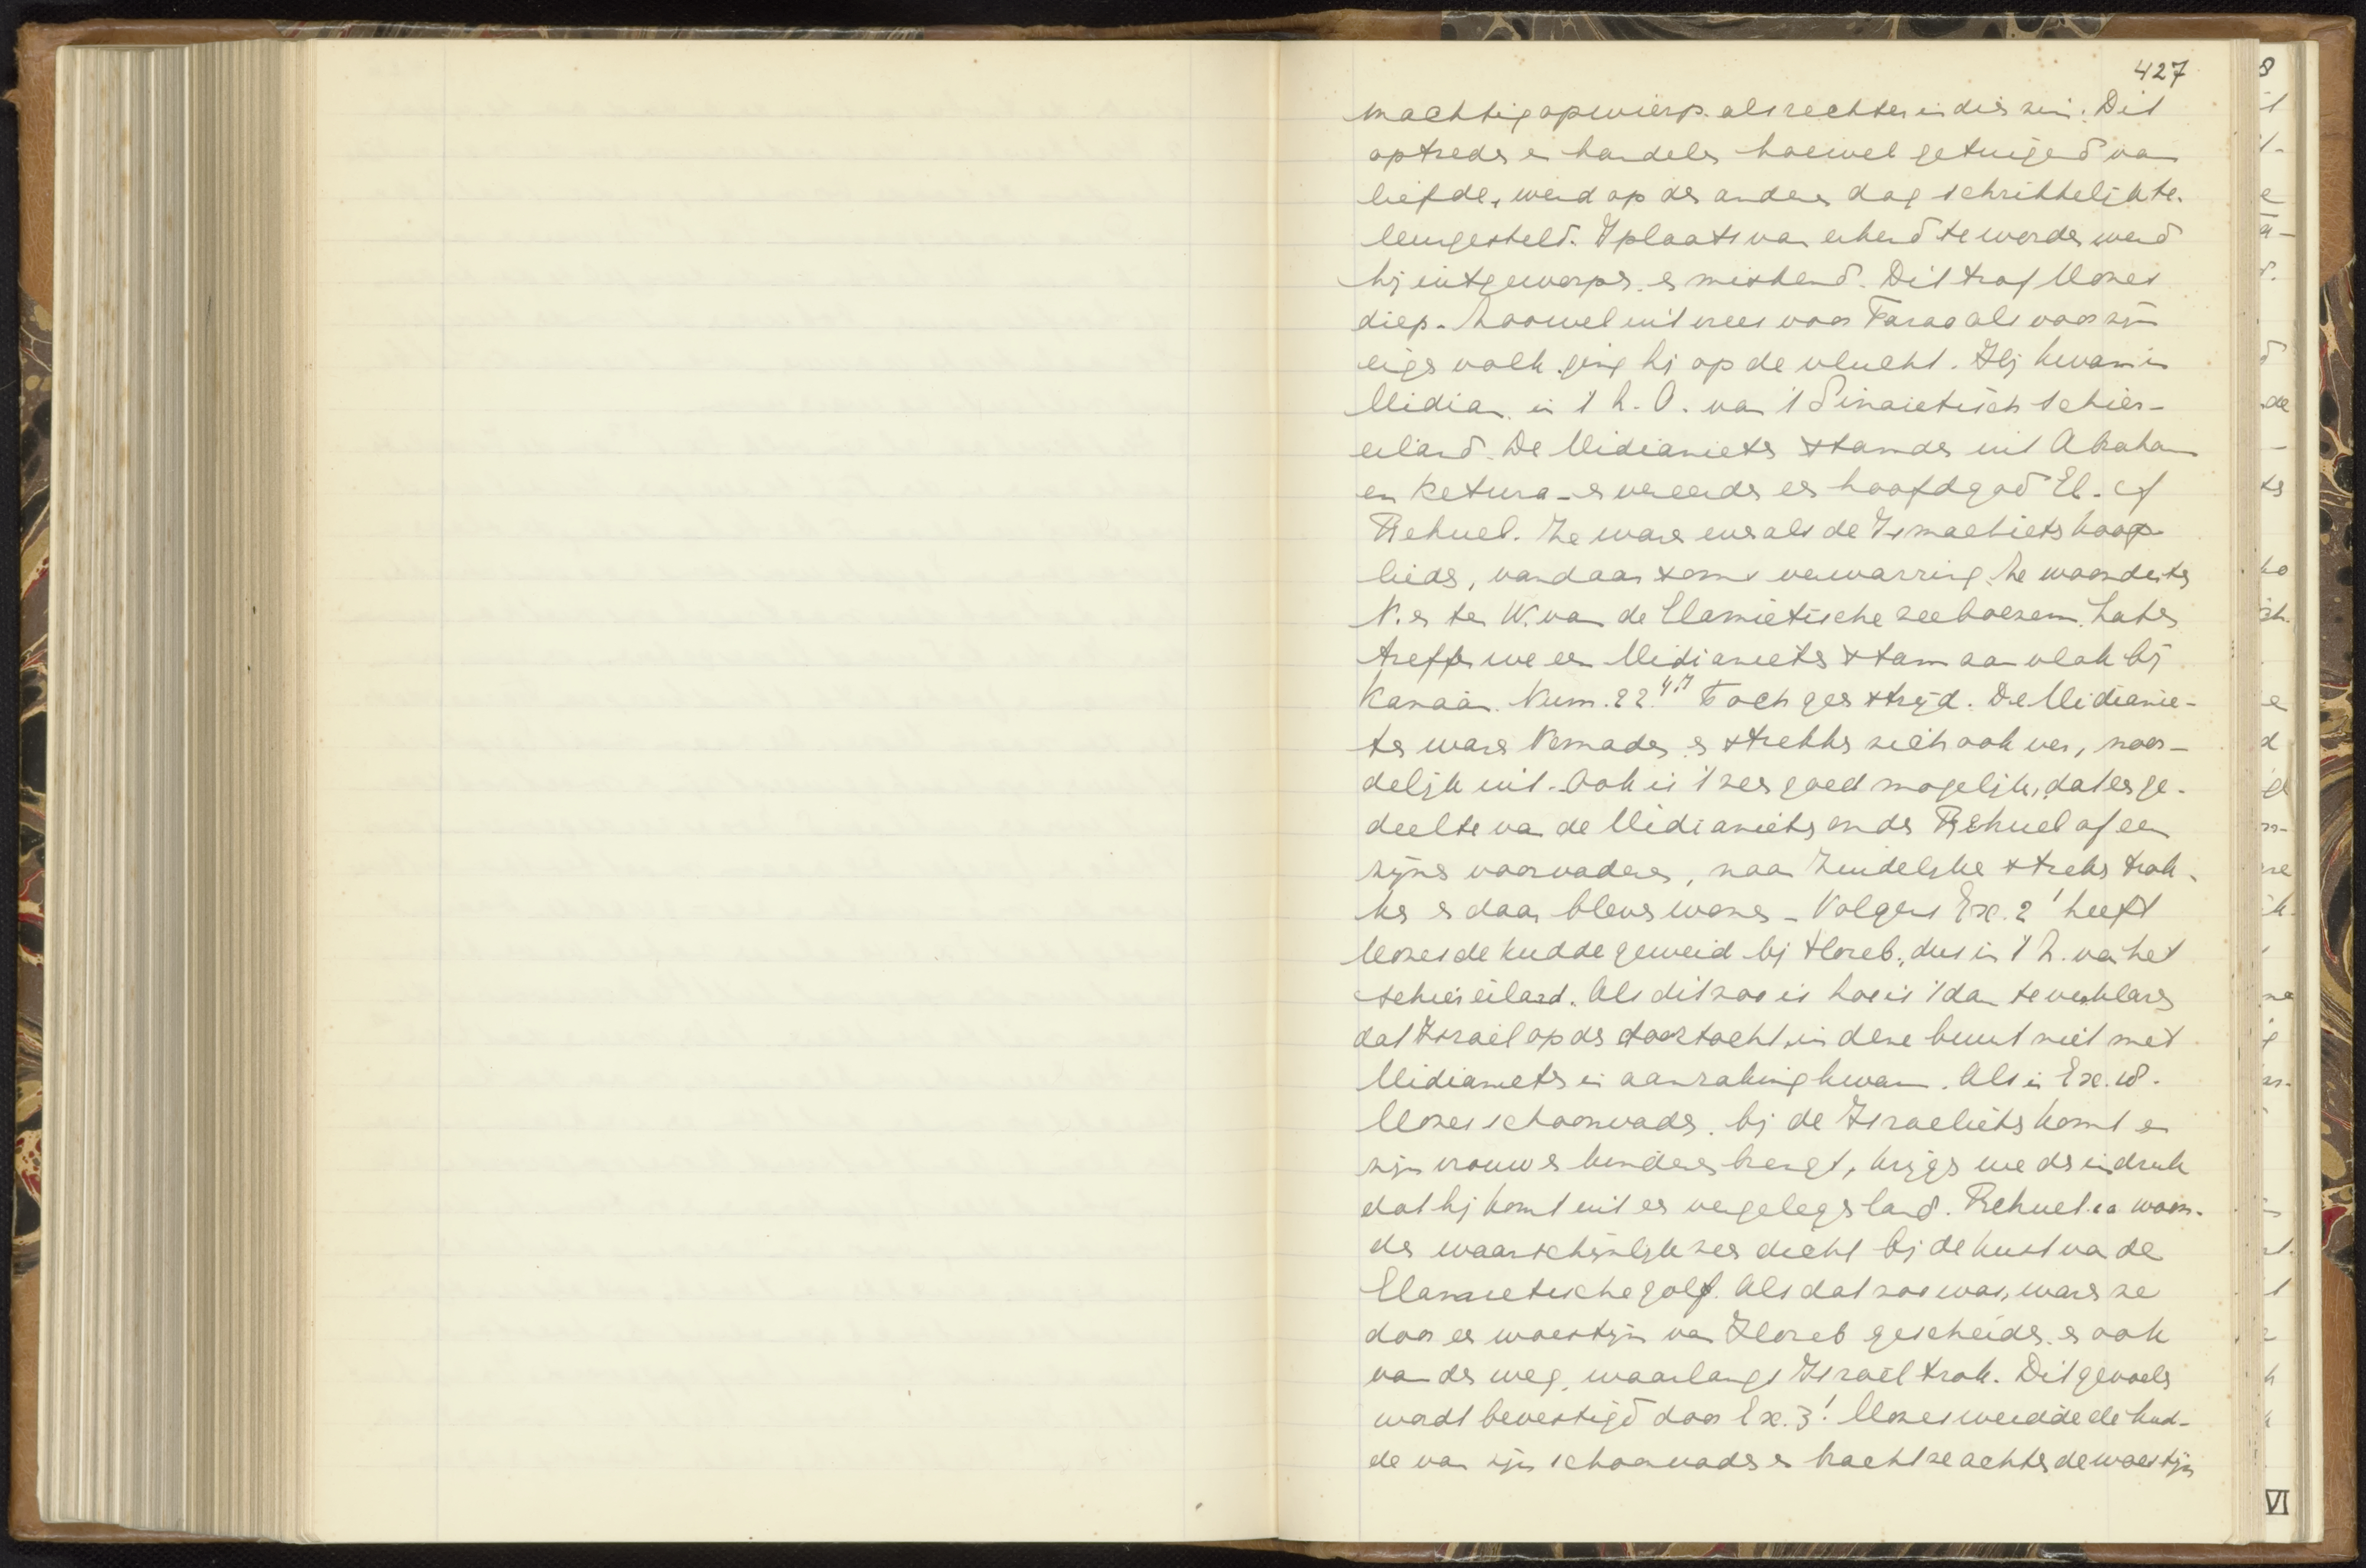 427
machtig opwierp als rechter in dien zin. Dit
optreden en handelen hoewel getuigend van
liefde, werd op den anderen dag schrikkelijk te-
leurgesteld. I plaats van erkend te worden werd
hij uitgeworpen en miskend. Dit trof Mozes
diep. Zoowel uit vrees voor Farao als voor zijn
eigen volk ging hij op de vlucht. Hij kwam in
Midian in 't Z.O. van 't Sinaietisch schier-
eiland. De Midianieten stamden uit Abraham
en Ketura - en vereerden een hoofdgod El. cf
Rehuel. Ze waren evenals de Ismaelieten koop
lieden, vandaar soms verwarring. Ze woonden ten
N. en ten W. van de Elamietische zeeboezem. Later
treffen we een Midianieten stam aan vlak bij
Kanaän. Num. 22 4,7 Toch geen strijd. De Midianie-
ten waren Nomaden en strekken zich ook ver, noor-
delijk uit. Ook is 't zeer goed mogelijk, dat een ge-
deelte van de Midianieten onder Rehuel of een
zijner voorvaderen, naar Zuidelijke streken trok-
ken en daar bleven wonen - Volgens Ex. 2 1 heeft
Mozes de kudde geweid bij Horeb, dus in 't Z. van het
schiereiland. Als dit zoo is hoe is 't dan te verklaren
dat Israel op den doortocht in deze buurt niet met
Midianieten in aanraking kwam. Als in Ex. 18.
Mozes schoonvader bij de Israelieten komt en
zijn vrouw en kinderen brengt, krijgen we den indruk
dat hij komt uit een vergelegen land. Rehuel ea woon-
den waarschijnlijk zeer dicht bij de kust van de
Elamietische golf. Als dat zoo was, waren ze
door een woestijn van Horeb gescheiden en ook
van den weg, waarlangs Israël trok. Dit gevoelen
wordt bevestigd door Ex. 3 1 Mozes weidde de kud-
de van zijn schoonvader en bracht ze achter de woestijn
VI